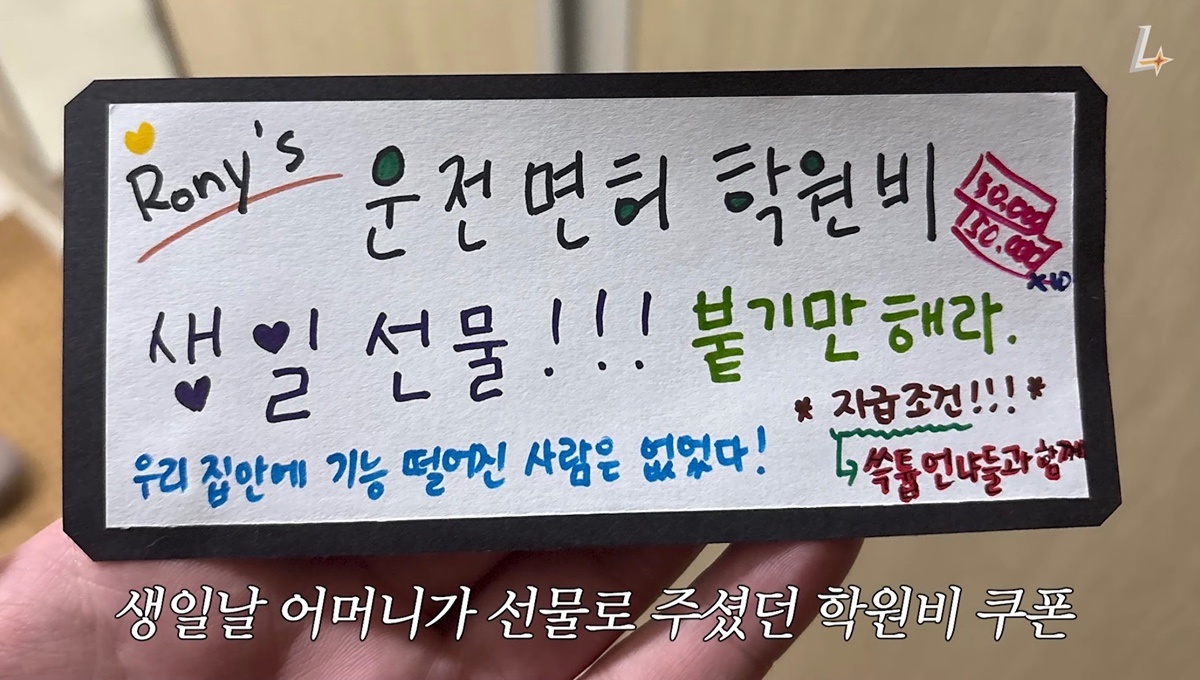 Rony's 운전면허 학원비
50.000
50.000
×10
생일 선물!!! 붙기만 해라.
* 지급조건!!! *
우리 집안에 기능 떨어진 사람은 없었다!
쓱튭언냐들과 함께
생일날 어머니가 선물로 주셨던 학원비 쿠폰